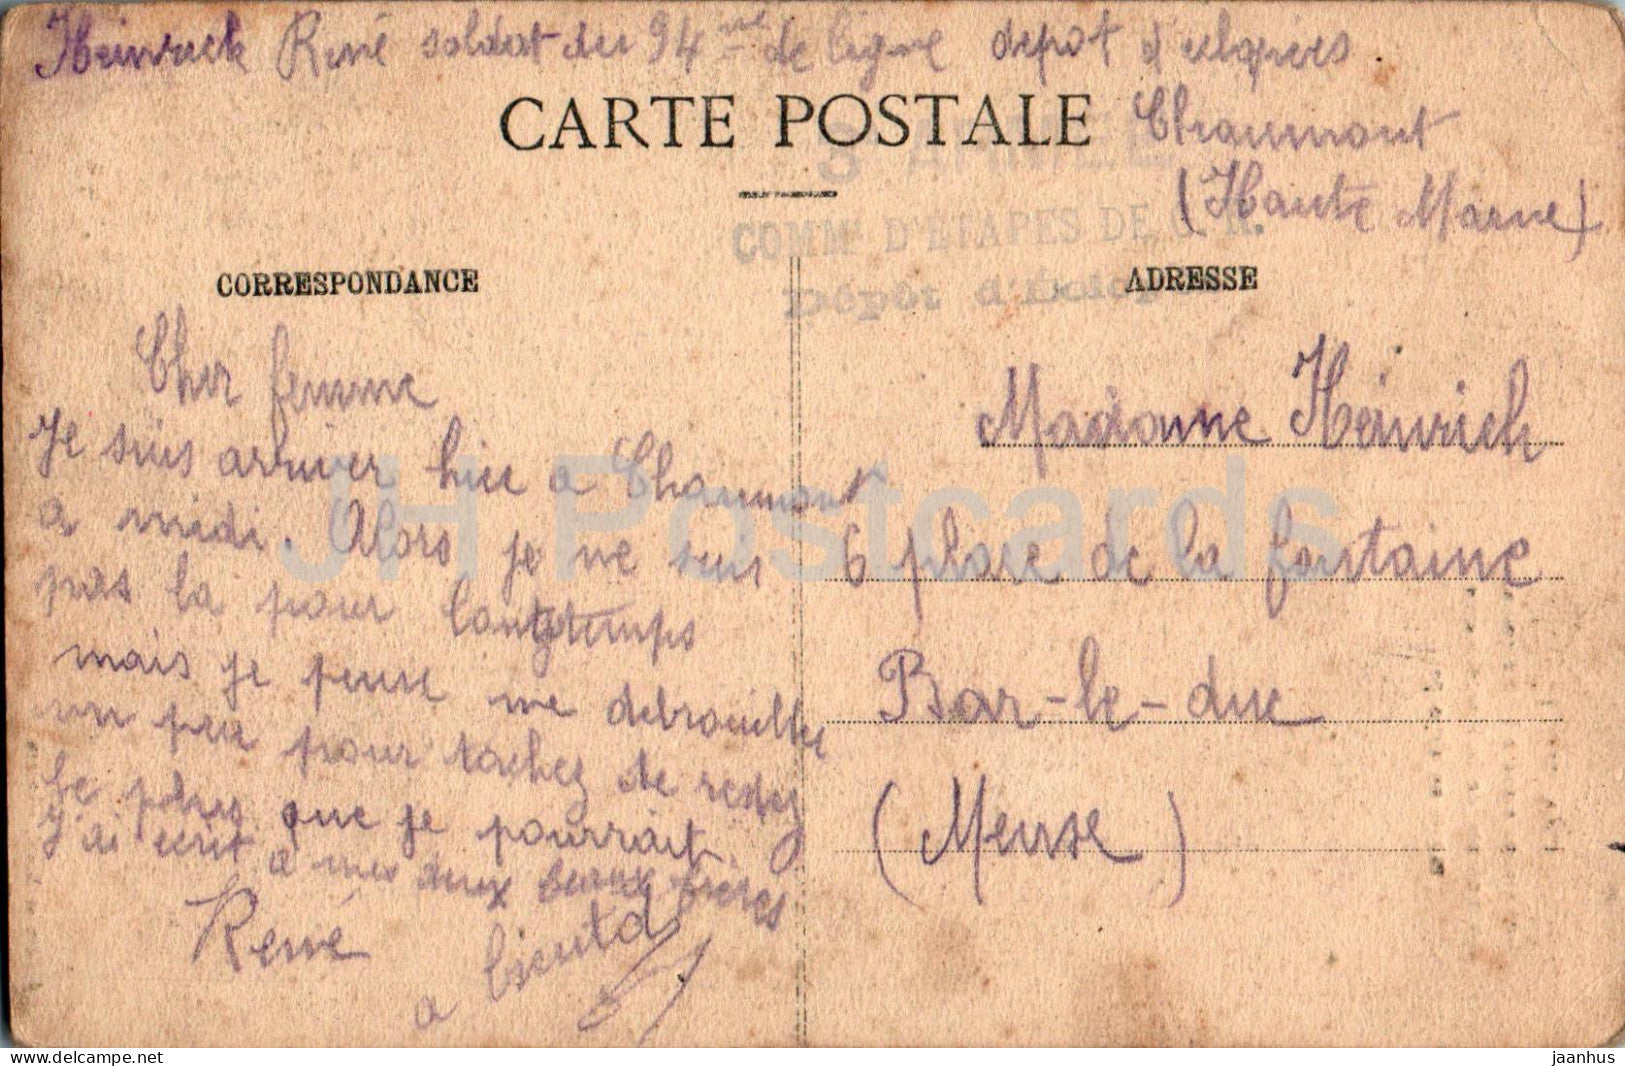 Heinrich René soldat du 94me de ligne depot d'eclopiers
CARTE POSTALE
Chaumont
(Haute Marne)
COMMt D'ETAPES DE
Dépôt d'Eclopés
CORRESPONDANCE
ADRESSE
Cher femme
Je suis arriver hier a Chaumont
a midi. Alors je ne suis
pas la pour longtemps
mais je peuse me debrouiller
un peu pour tachez de restez
le plus que je pourrait.
J'ai ecrit a mes deux beaux frères
René
a bientot
Madame Heinrich
6 place de la fontaine
Bar-le-duc
(Meuse)
JH Postcards
www.delcampe.net
jaanhus